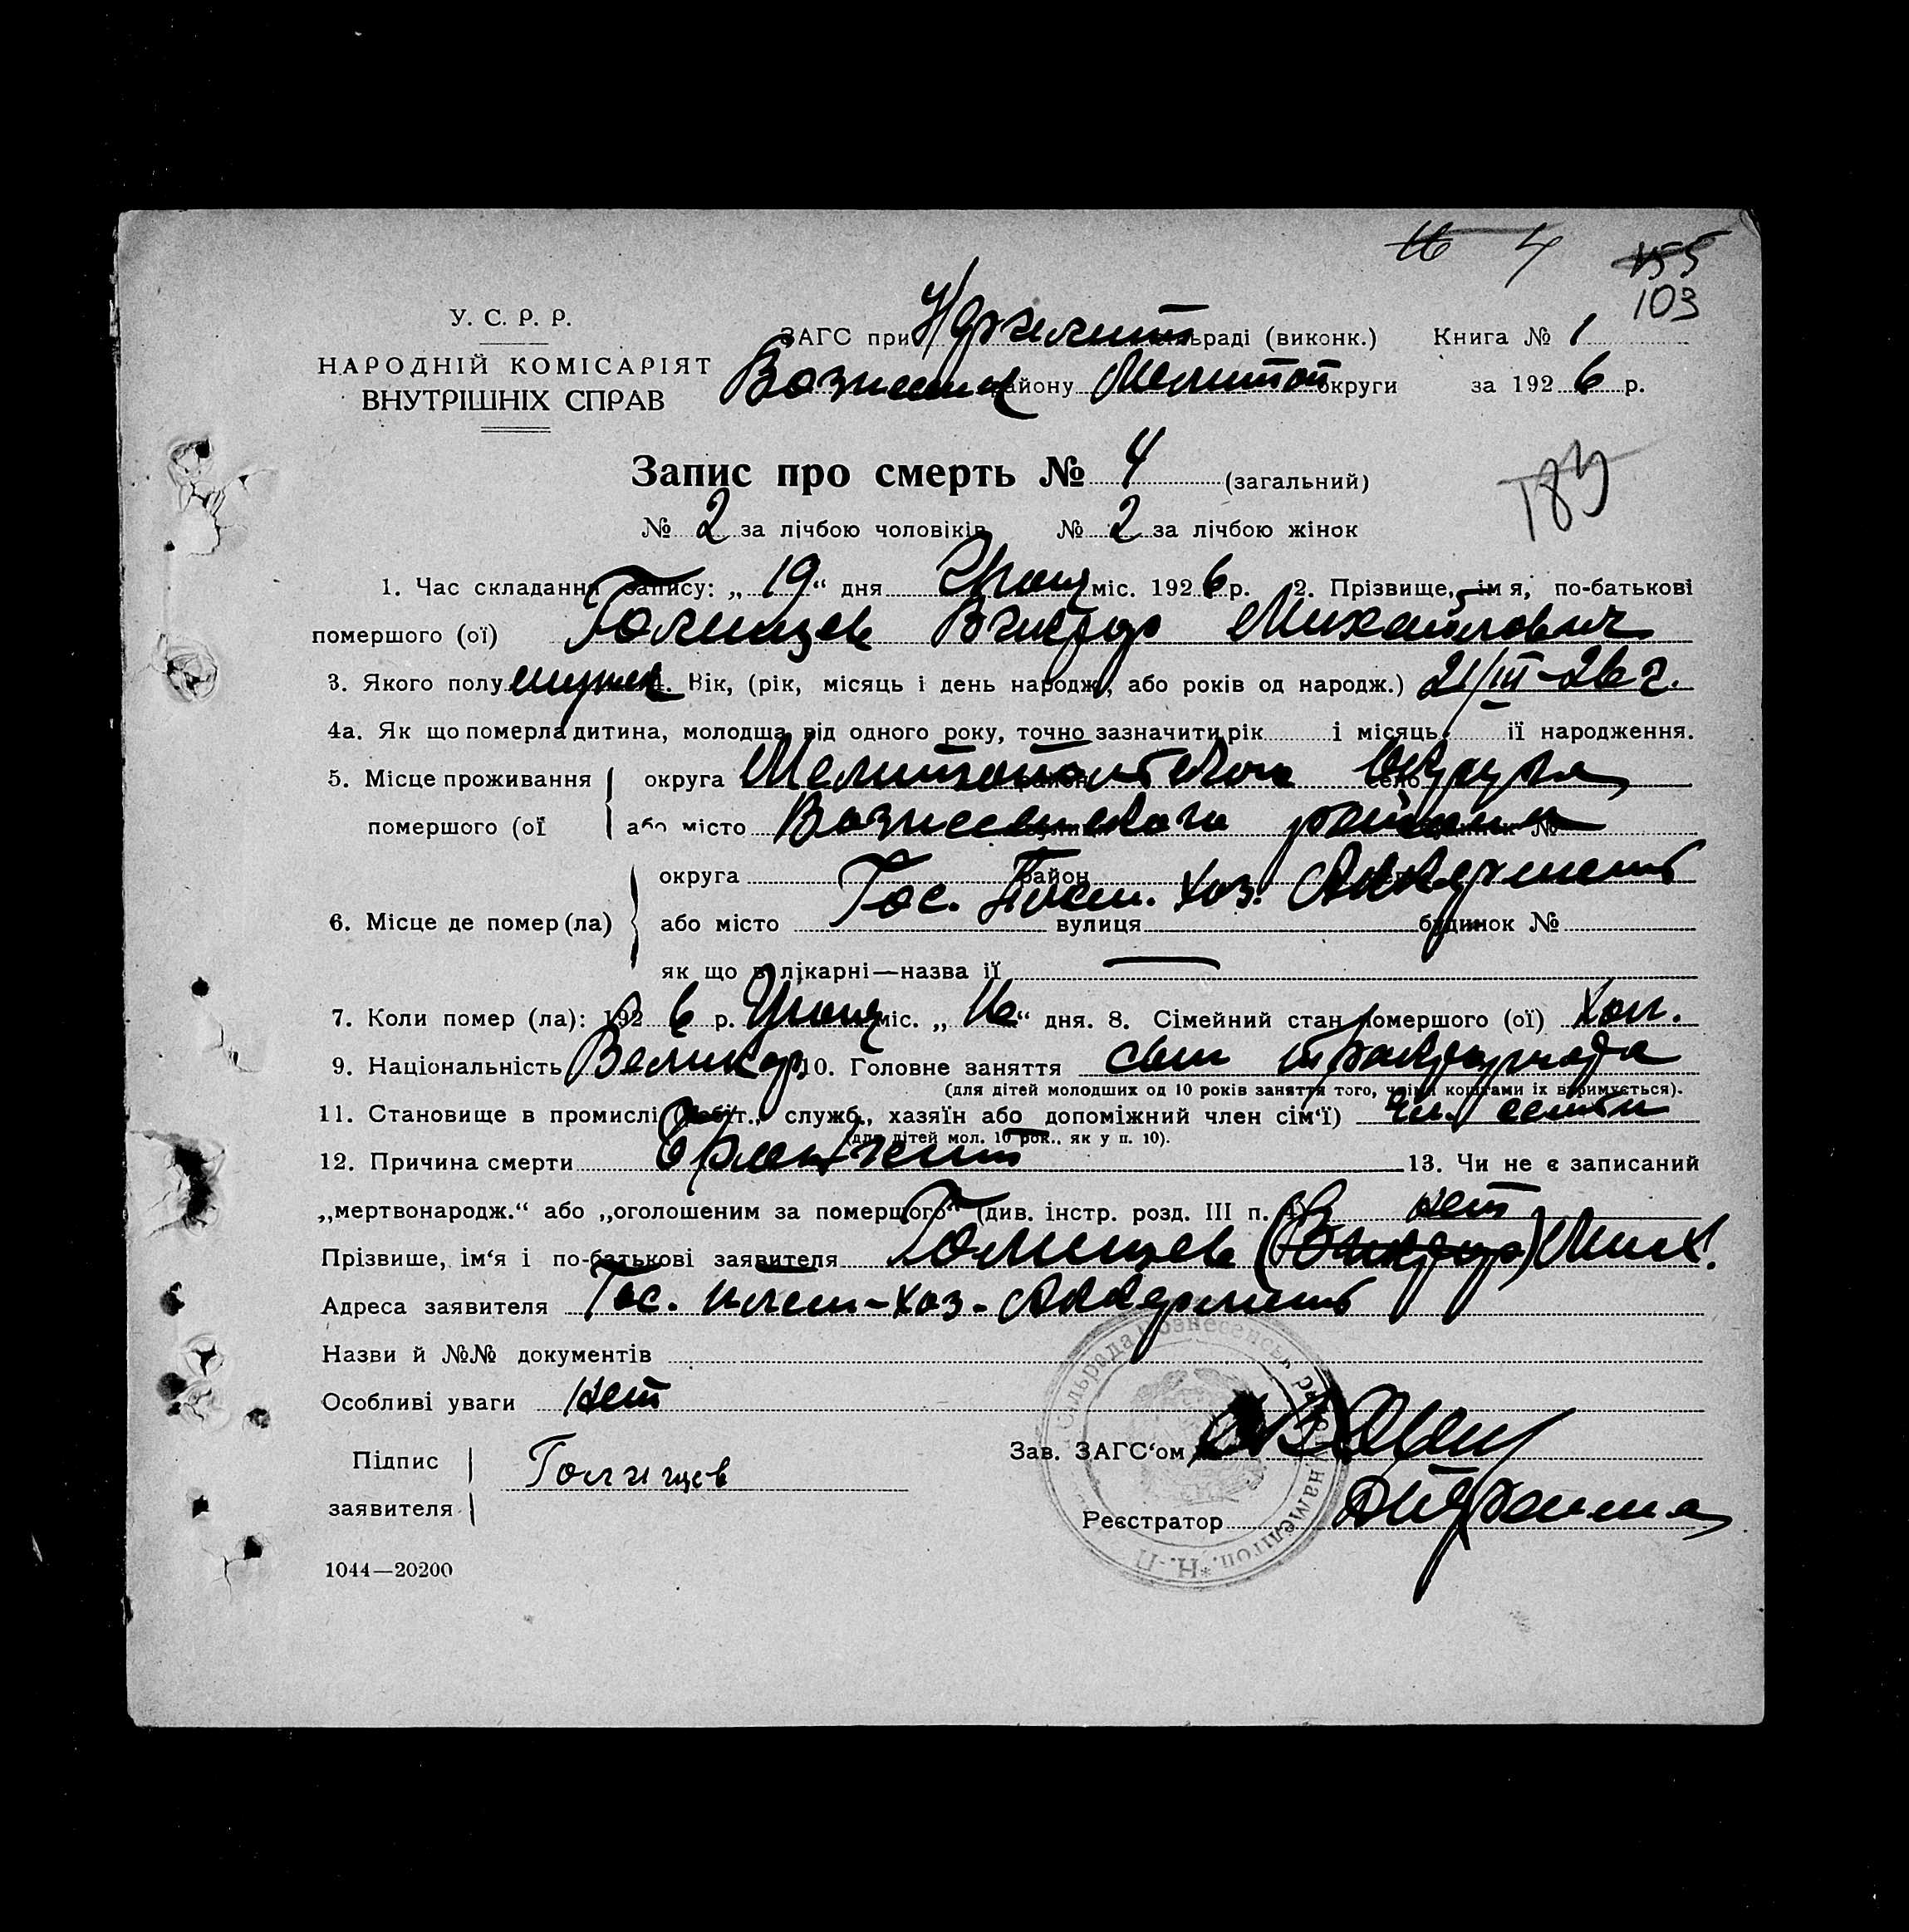 4 155
103
У. С. Р. Р.
НАРОДНІЙ КОМІСАРІЯТ
ВНУТРІШНІХ СПРАВ
ЗАГС при раді (виконк.) Книга № 1
Вознесенск району Мелитоп округи за 192 6 р.
Запис про смерть № 4 (загальний)
183
№ 2 за лічбою чоловіків № 2 за лічбою жінок
1. Час складання запису: „ 19 “ дня міс. 192 6 р. 2. Прізвище, ім'я, по-батькові
помершого (ої) Голищев Виктор Михайлович
3. Якого полу мужск 4. Вік, (рік, місяць і день народж., або років од народж.) 21/III-26 г.
4а. Як що померла дитина, молодша від одного року, точно зазначити рік і місяць її народження.
5. Місце проживання округа Мелитопольской Округа
помершого (ої або місто Вознесенского района
6. Місце де помер (ла) округа район
Гос. Плем. Хоз. Аккермень
або місто вулиця будинок №
як що в лікарні—назва її —
7. Коли помер (ла): 192 6 р. міс. „ 16 “ дня. 8. Сімейний стан помершого (ої) Хол.
9. Національність Великор 10. Головне заняття сын
(для дітей молодших од 10 років заняття того, чиїми коштами їх втримується).
11. Становище в промислі (робіт., служб., хазяїн або допоміжний член сім'ї) чл. семьи
(для дітей мол. 10 рок., як у п. 10).
12. Причина смерти 13. Чи не є записаний
„мертвонародж.“ або „оголошеним за помершого“ (див. інстр. розд. III п. нет
Прізвише, ім'я і по-батькові заявителя Голищев (Виктор) Мих.
Адреса заявителя Гос. плем-хоз. Аккермень
Назви й №№ документів
Особливі уваги нет
Підпис заявителя Голищев
Зав. ЗАГС'ом
Реєстратор
1044—20200